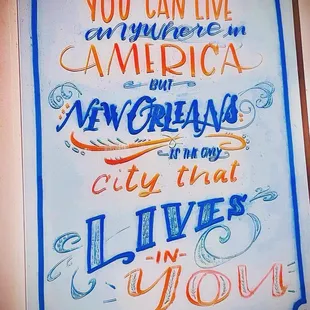 YOU CAN LIVE
anywhere in
AMERICA
BUT
NEW ORLEANS
IS THE ONLY
city that
LIVES
-IN-
YOU